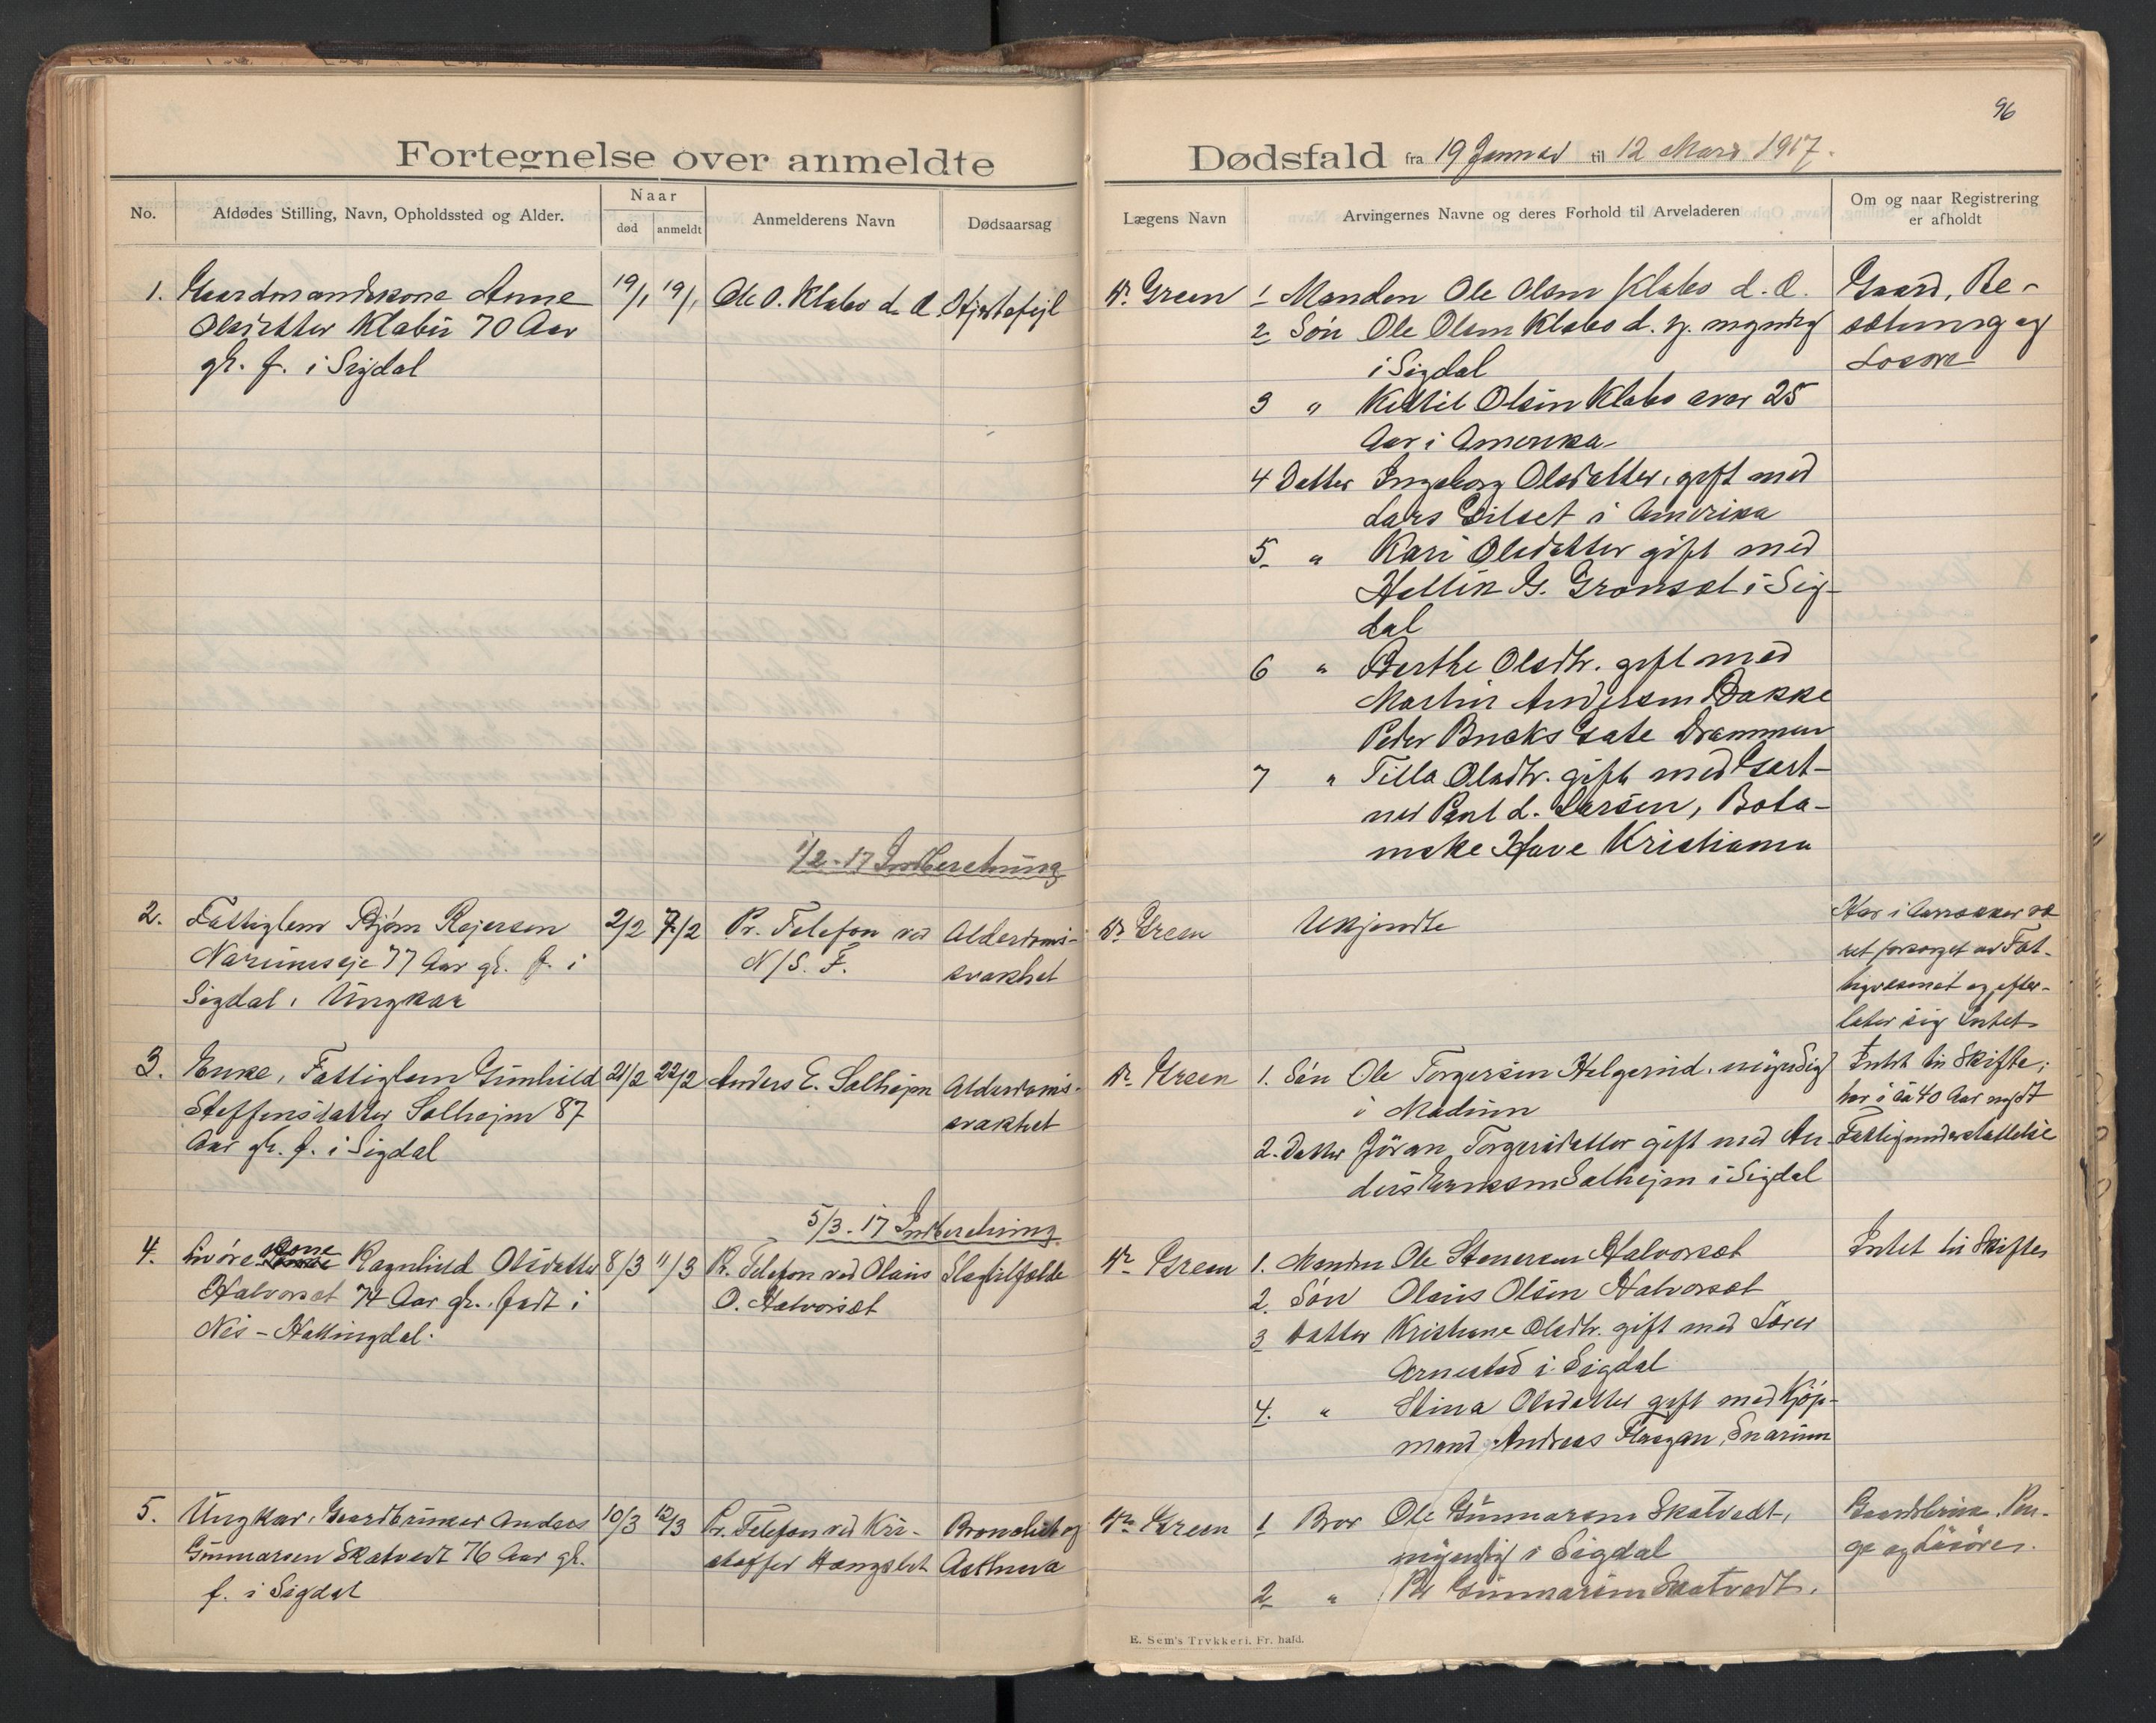 96
Fortegnelse over anmeldte Dødsfald fra 19 Januar til 12 Mars 1917.
No.
Afdødes Stilling, Navn, Opholdssted og Alder.
Naar
død
anmeldt
Anmelderens Navn
Dødsaarsag
Lægens Navn
Arvingernes Navne og deres Forhold til Arveladeren
Om og naar Registrering
er afholdt
1. Gaardmandskone Anne
Olsdatter Klabo 70 Aar
gl. f. i Sigdal
19/1 19/1
Ole O. Klabo d. Æ.
Hjertefejl
Dr. Green
1 Manden Ole Olsen Klabo d. Æ.
2 Søn Ole Olsen Klabo d. y. myndig
i Sigdal
3 " Kittil Olsen Klabo over 25
Aar i Amerika
4 Datter Ingeborg Olsdatter, gift med
Lars Lilset i Amerika
5 " Kari Olsdatter gift med
Hellik G. Grønsæt i Sig-
dal
6 " Berthe Olsdtr. gift med
Martin Andersen Bakke
Peder Bucks Gate Drammen
7 " Tilla Olsdtr. gift med Gart-
ner Paul L. Larsen, Bota-
niske Have Kristiania
Gaard, Be-
sætning og
Løsøre
1/2-17 Indberetning
2. Fattiglem Bjørn Rejersen
Narumseje 77 Aar gl. f. i
Sigdal, Ungkar
2/2 7/2
Pr. Telefon ved
N/S. F.
Alderdoms-
svakhet
Dr. Green
Ukjendte
Har i Aarrækker væ
ret forsørget av Fat-
tigvæsenet og efter-
later sig Intet
3. Enke, Fattiglem Gunhild
Steffensdatter Solhejm 87
Aar gl. f. i Sigdal
21/2 22/2
Anders E. Solhejm
Alderdoms-
svakhet
Dr. Green
1. Søn Ole Torgersen Helgerud, myndig
i Modum
2. Datter Jöran Torgersdatter gift med An-
ders Eriksen Solhejm i Sigdal
Intet til Skifte;
har i ca 40 Aar nydt
Fattigunderstøttelse
5/3-17 Indberetning
4. kone Ragnhild Olsdatter
Halvorsæt 74 Aar gl., født i
Nes-Hallingdal.
8/3 11/3
Pr. Telefon ved Olaus
O. Halvorsæt
Slagtilfælde
Dr. Green
1. Manden Ole Stenersen Halvorsæt
2. Søn Olaus Olsen Halvorsæt
3 Datter Kristiane Olsdtr. gift med Lærer
Arnestad i Sigdal
4. " Stina Olsdatter gift med Kjøp-
mand Andreas Snarum
Intet til Skifte
5. Ungkar, Gaardbruker Anders
Gunnarsen Skatvedt 76 Aar gl.
f. i Sigdal
10/3 12/3
Pr. Telefon ved Kri-
stoffer Haugslet
Bronchit og
Asthma
Dr. Green
1 Bror Ole Gunnarsen Skatvedt,
myndig i Sigdal
2 " Per Gunnarsen Skatvedt.
Gaardsbruk, Pen-
ge og Løsøre.
E. Sem's Trykkeri. Fr. hald.